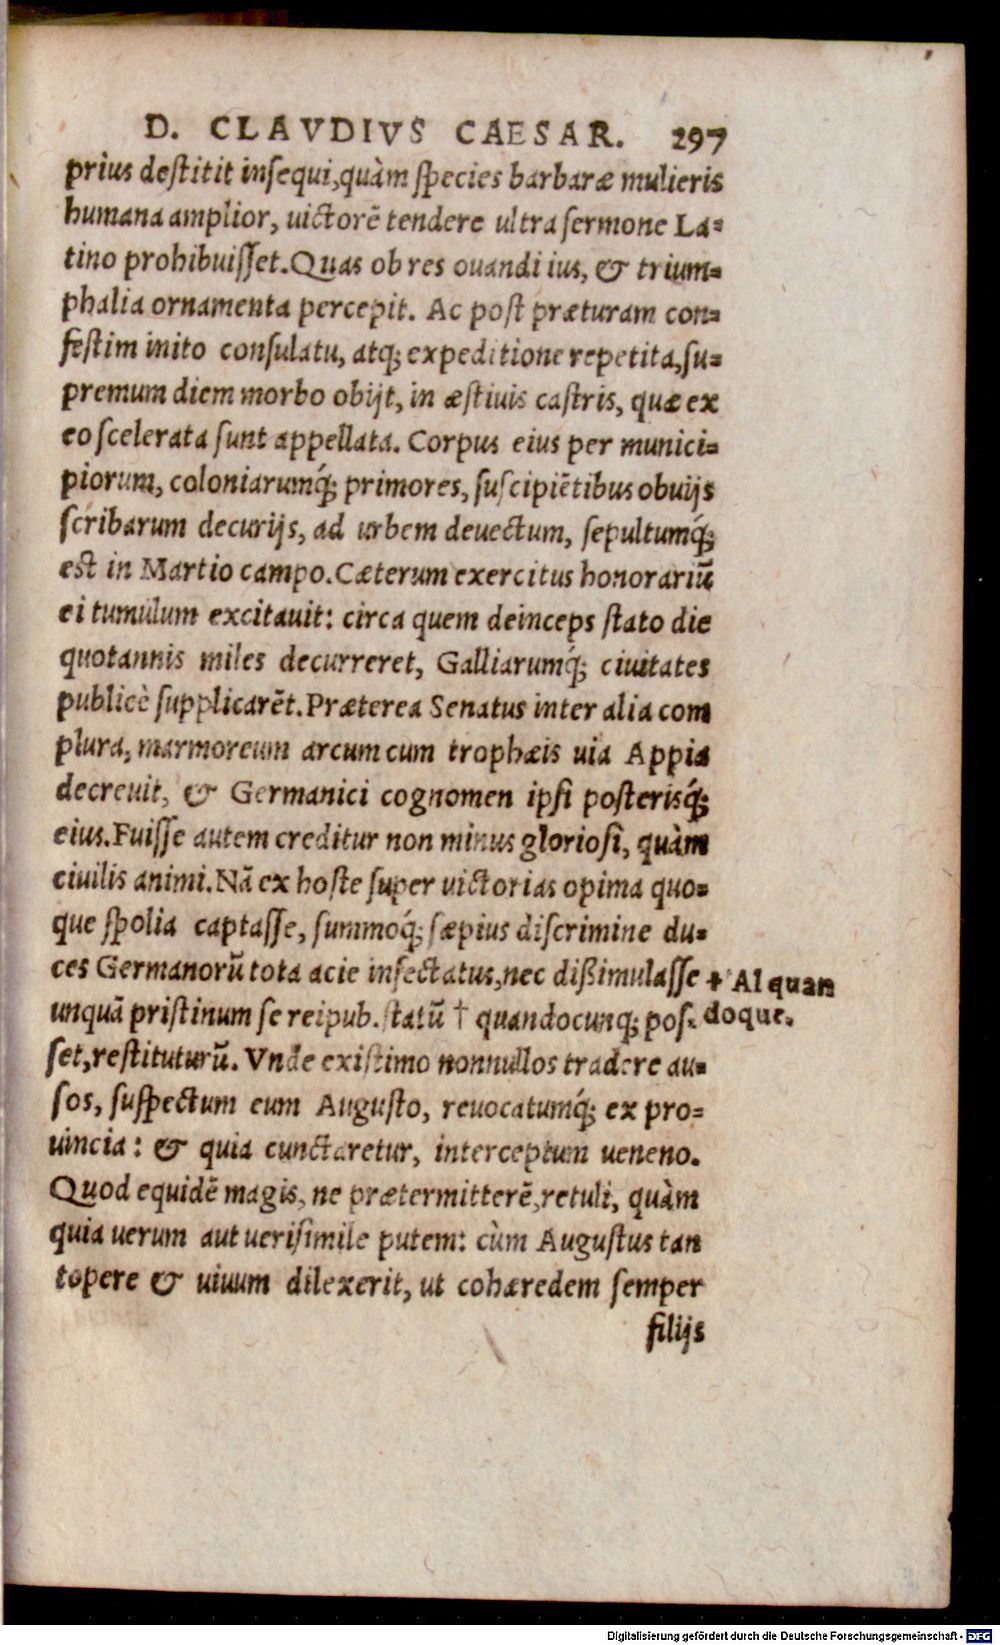 D. CLAVDIVS CAESAR. 297
prius destitit insequi, quàm species barbaræ mulieris
humana amplior, uictorē tendere ultra sermone La=
tino prohibuisset. Quas ob res ouandi ius, & trium=
phalia ornamenta percepit. Ac post præturam con=
festim inito consulatu, atq; expeditione repetita, su=
premum diem morbo obijt, in æstiuis castris, quæ ex
eo scelerata sunt appellata. Corpus eius per munici=
piorum, coloniarumq́; primores, suscipiētibus obuijs
scribarum decurijs, ad urbem deuectum, sepultumq́;
est in Martio campo. Cæterum exercitus honorariū
ei tumulum excitauit: circa quem deinceps stato die
quotannis miles decurreret, Galliarumq́; ciuitates
publicè supplicarēt. Præterea Senatus inter alia com
plura, marmoreum arcum cum trophæis uia Appia
decreuit, & Germanici cognomen ipsi posterisq́;
eius. Fuisse autem creditur non minus gloriosi, quàm
ciuilis animi. Nā ex hoste super uictorias opima quo=
que spolia captasse, summoq́; sæpius discrimine du=
ces Germanorū tota acie insectatus, nec dißimulasse
unquā pristinum se reipub. statū † quandocunq; pos=
set, restituturū. Vnde existimo nonnullos tradere au=
sos, suspectum eum Augusto, reuocatumq́; ex pro=
uincia: & quia cunctaretur, interceptum ueneno.
Quod equidē magis, ne prætermitterē, retuli, quàm
quia uerum aut uerisimile putem: cùm Augustus tan
topere & uiuum dilexerit, ut cohæredem semper
filijs
† Al quan
doque.
Digitalisierung gefördert durch die Deutsche Forschungsgemeinschaft - DFG